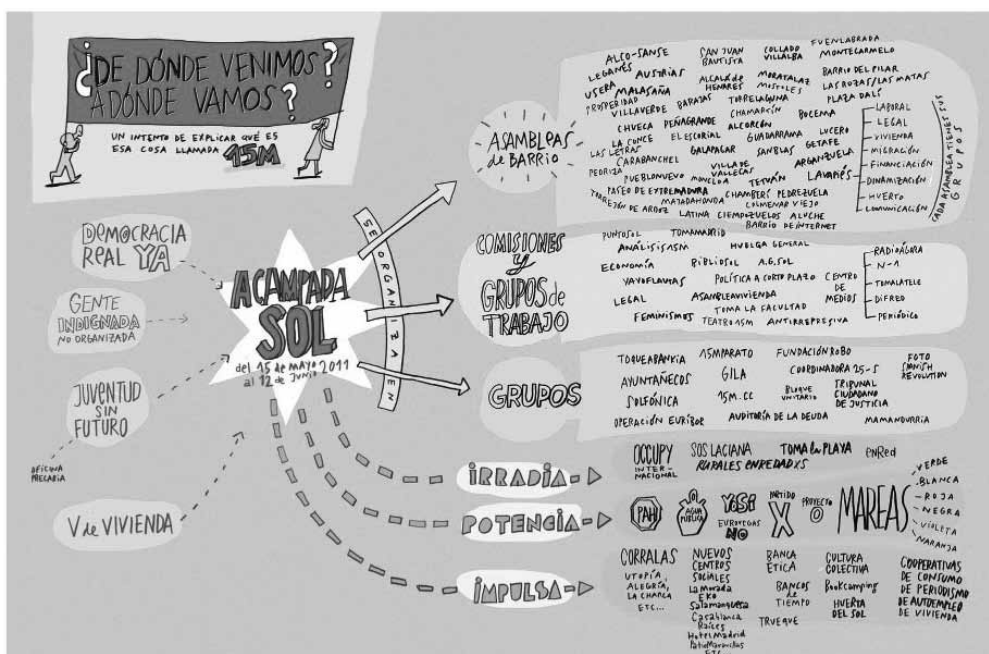 ¿DE DÓNDE VENIMOS?
A DÓNDE VAMOS?
UN INTENTO DE EXPLICAR QUÉ ES
ESA COSA LLAMADA 15M
DEMOCRACIA
REAL YA
GENTE
INDIGNADA
NO ORGANIZADA
JUVENTUD
SIN
FUTURO
OFICINA
PRECARIA
V de VIVIENDA
ACAMPADA
SOL
del 15 de MAYO 2011
al 12 de JUNIO
SE ORGANIZA EN
ASAMBLEAS
de BARRIO
ALCO-SANSE
SAN JUAN
BAUTISTA
COLLADO
VILLALBA
FUENLABRADA
MONTECARMELO
LEGANÉS
AUSTRIAS
ALCALÁ de
HENARES
MORATALAZ
MÓSTOLES
BARRIO DEL PILAR
LAS ROZAS/LAS MATAS
USERA
MALASAÑA
PROSPERIDAD
VILLAVERDE
BARAJAS
TORRELAGUNA
CHAMARTÍN
PLAZA DALÍ
CHUECA
PEÑAGRANDE
ALCORCÓN
BOCEMA
LA CONCE
EL ESCORIAL
GUADARRAMA
LUCERO
LAS LETRAS
GALAPAGAR
SANBLAS
GETAFE
CARABANCHEL
ARGANZUELA
PEDRIZA
PUEBLONUEVO
MONCLOA
VILLA DE
VALLECAS
TETUÁN
LAVAPIÉS
PASEO DE EXTREMADURA
CHAMBERÍ
PEDREZUELA
TORREJÓN DE ARDOZ
MAJADAHONDA
COLMENAR VIEJO
LATINA
CIEMPOZUELOS
ALUCHE
BARRIO DE INTERNET
LABORAL
LEGAL
VIVIENDA
MIGRACIÓN
FINANCIACIÓN
DINAMIZACIÓN
HUERTO
COMUNICACIÓN
CADA ASAMBLEA TIENE SUS
GRUPOS
COMISIONES
y
GRUPOS de
TRABAJO
PUNTOSOL
TOMAMADRID
ANÁLISIS15M
HUELGA GENERAL
ECONOMÍA
BIBLIOSOL
A.G.SOL
YAYOFLAUTAS
POLÍTICA A CORTO PLAZO
LEGAL
ASAMBLEAVIVIENDA
TOMA LA FACULTAD
FEMINISMOS
TEATRO15M
ANTIRREPRESIVA
CENTRO
DE
MEDIOS
RADIOÁGORA
N-1
TOMALATELE
DIFRED
PERIÓDICO
GRUPOS
TOQUEABANKIA
15MPARATO
FUNDACIÓN ROBO
FOTO
SPANISH
REVOLUTION
AYUNTAÑECOS
GILA
COORDINADORA 25-S
SOLFÓNICA
15M.CC
BLOQUE
UNITARIO
TRIBUNAL
CIUDADANO
DE JUSTICIA
OPERACIÓN EURIBOR
AUDITORÍA DE LA DEUDA
MAMANDURRIA
IRRADIA
OCCUPY
INTER-
NACIONAL
SOS LACIANA
TOMA la PLAYA
enRed
RURALES ENREDADXS
POTENCIA
PAH
AGUA
PÚBLICA
YoSí
EUROVEGAS
NO
PARTIDO
X
PROYECTO
O
MAREAS
VERDE
BLANCA
ROJA
NEGRA
VIOLETA
NARANJA
IMPULSA
CORRALAS
UTOPÍA,
ALEGRÍA,
LA CHARCA
ETC...
NUEVOS
CENTROS
SOCIALES
La Morada
EKO
Salamanquesa
Casablanca
Raíces
Hotel Madrid
Patio Maravillas
ETC
BANCA
ÉTICA
BANCOS
de
TIEMPO
TRUEQUE
CULTURA
COLECTIVA
Bookcamping
HUERTA
DEL SOL
COOPERATIVAS
DE CONSUMO
DE PERIODISMO
DE AUTOEMPLEO
DE VIVIENDA